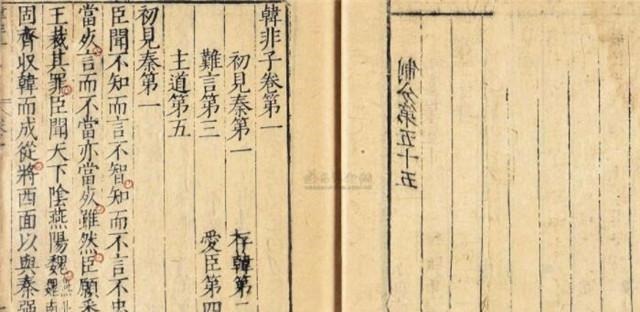 制分第五十五
韓非子卷第一
初見秦第一 存韓第二
難言第三 愛臣第四
主道第五
初見秦第一
臣聞不知而言不智知而不言不忠
當死言而不當亦當死雖然臣願悉
王裁其罪臣聞天下陰燕陽魏燕北魏南
固齊収韓而成從將西面以與秦強